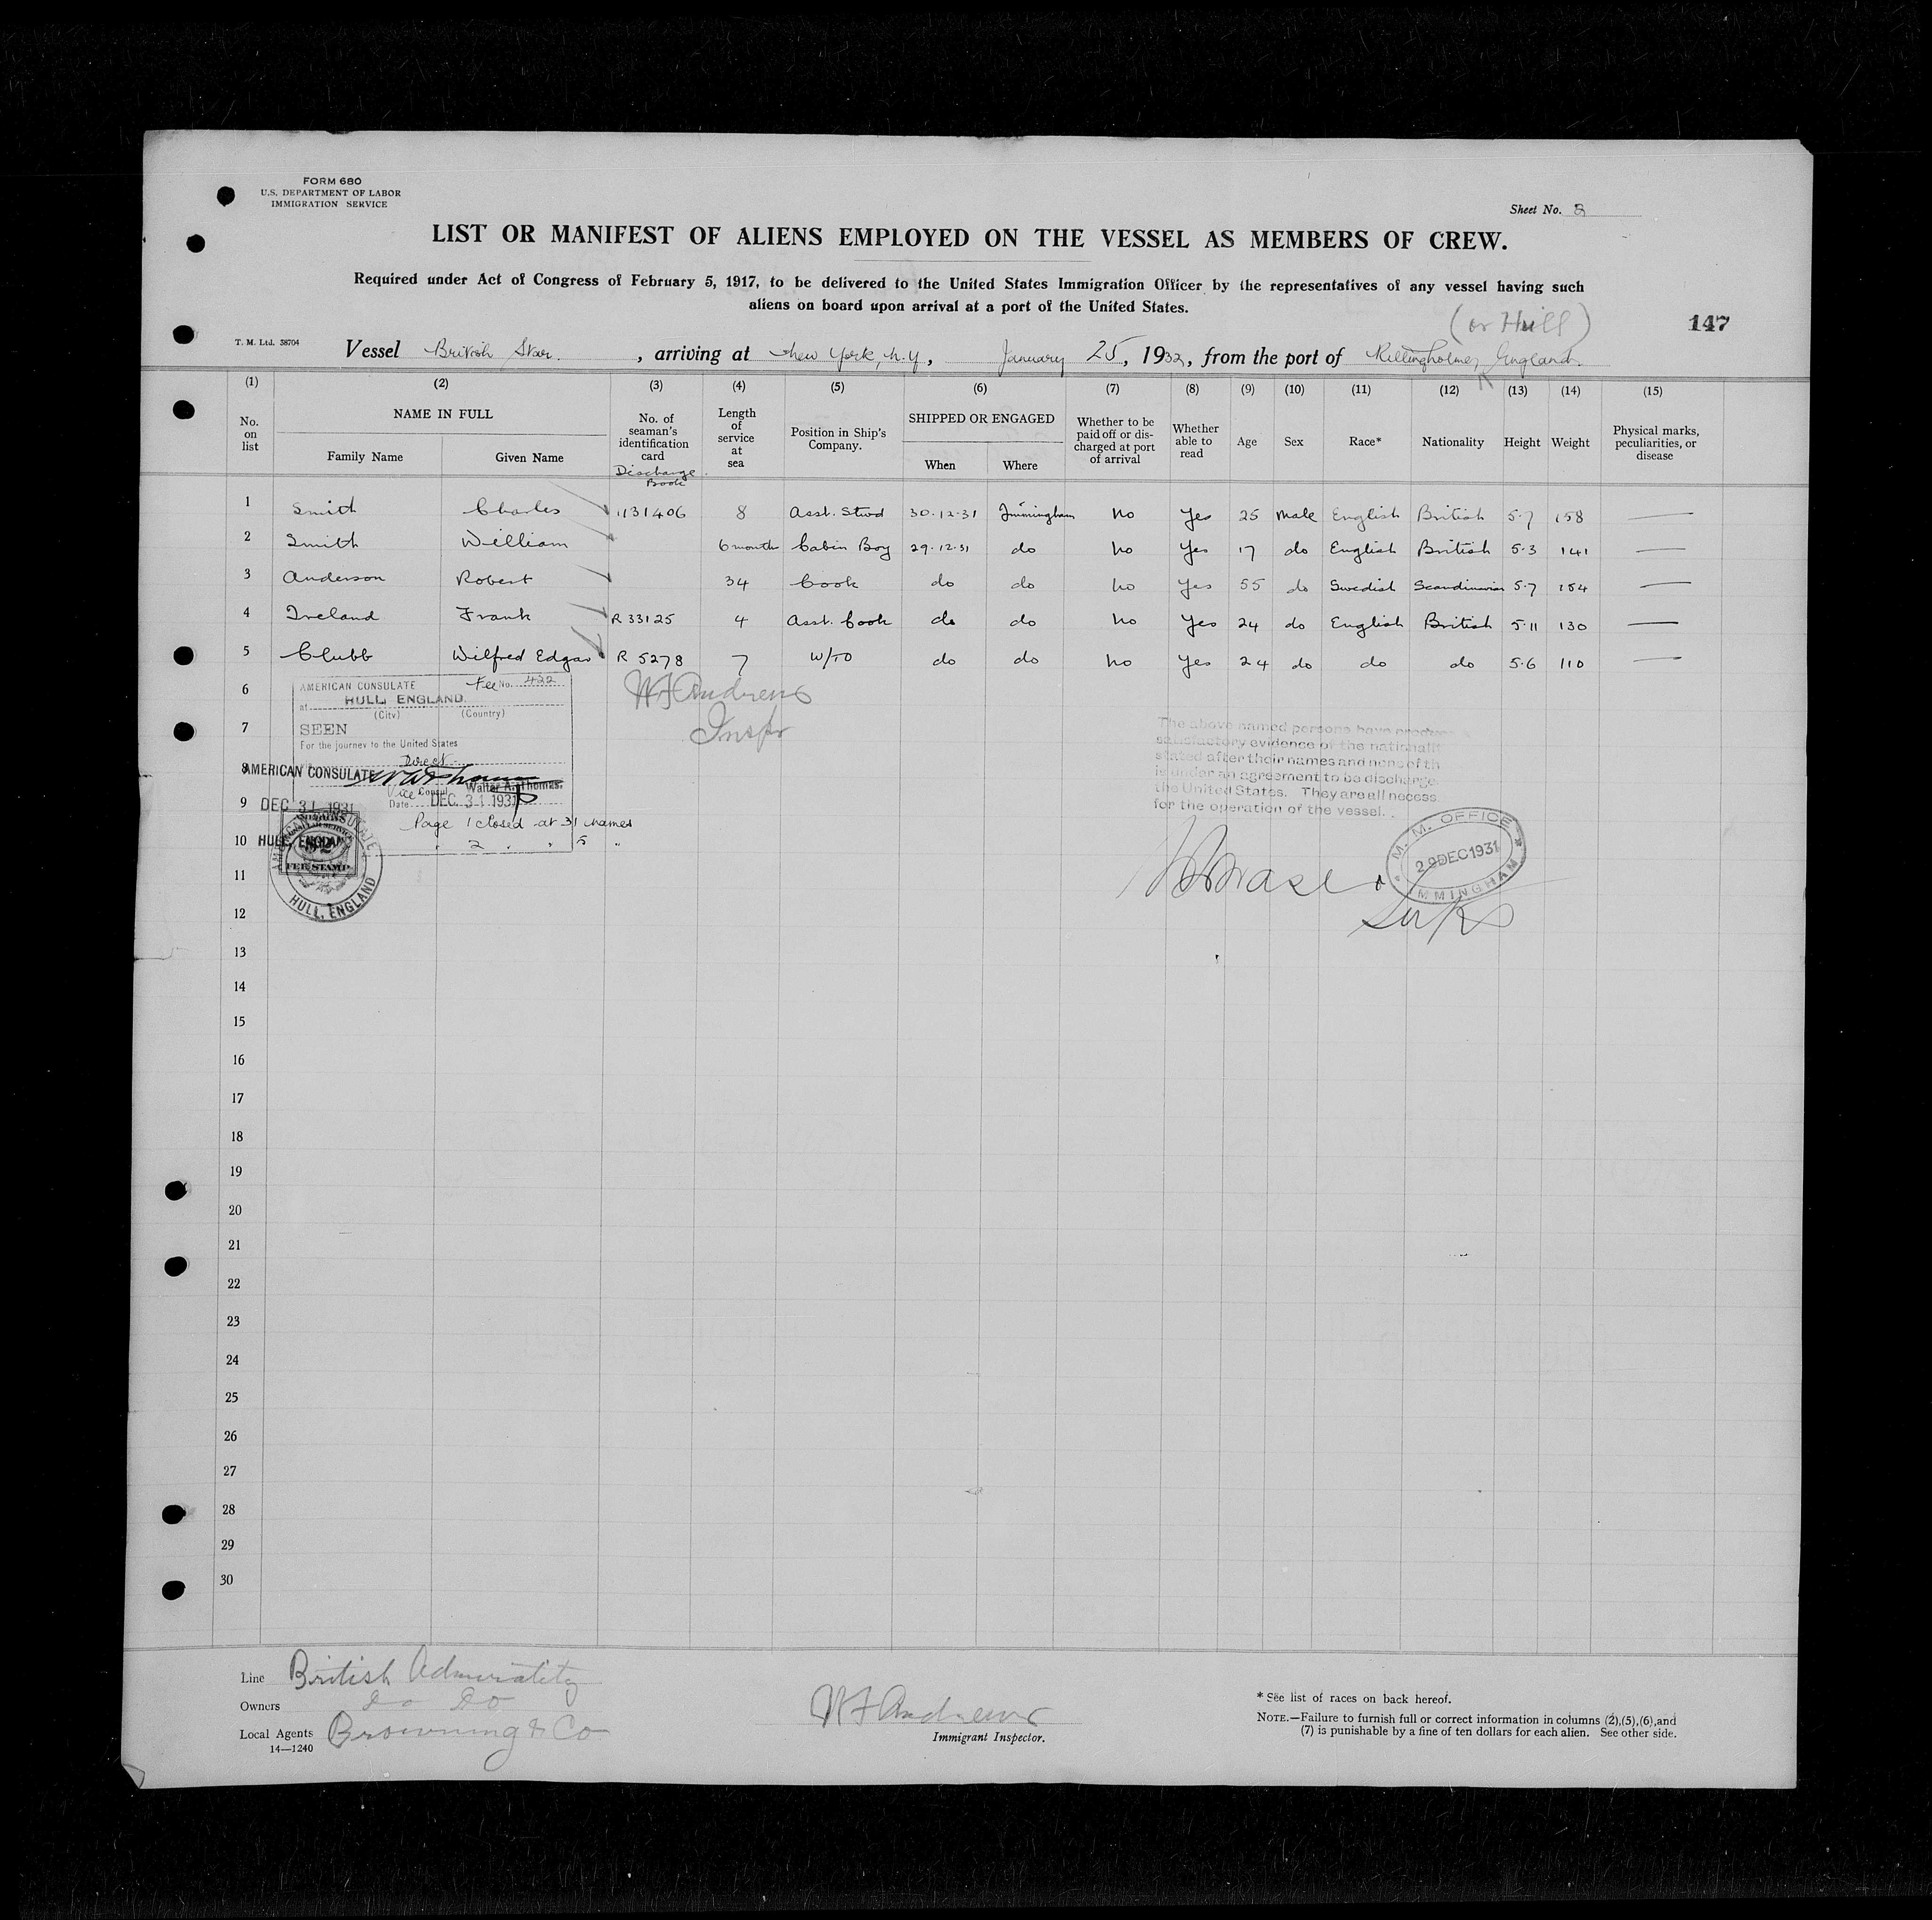 FORM 680
U.S. DEPARTMENT OF LABOR
IMMIGRATION SERVICE
Sheet No. 2
LIST OR MANIFEST OF ALIENS EMPLOYED ON THE VESSEL AS MEMBERS OF CREW.
Required under Act of Congress of February 5, 1917, to be delivered to the United States Immigration Officer by the representatives of any vessel having such
aliens on board upon arrival at a port of the United States.
(or Hull)
147
T. M. Ltd. 38704
Vessel British Star, arriving at New York, N.Y., January 25, 1932, from the port of Killingholme, England.
(1) (2) (3) (4) (5) (6) (7) (8) (9) (10) (11) (12) (13) (14) (15)
No. on list
NAME IN FULL
Family Name
Given Name
No. of seaman's identification card
Discharge Book
Length of service at sea
Position in Ship's Company.
SHIPPED OR ENGAGED
When
Where
Whether to be paid off or discharged at port of arrival
Whether able to read
Age
Sex
Race*
Nationality
Height
Weight
Physical marks, peculiarities, or disease
1 Smith Charles 1131406 8 Asst. Stwd 30.12.31 Immingham No Yes 25 Male English British 5.7 158 —
2 Smith William 6 months Cabin Boy 29.12.31 do No Yes 17 do English British 5.3 141 —
3 Anderson Robert 34 Cook do do No Yes 55 do Swedish Scandinavian 5.7 154 —
4 Ireland Frank R 33125 4 Asst. Cook do do No Yes 24 do English British 5.11 130 —
5 Clubb Wilfred Edgar R 5278 7 W/TO do do No Yes 24 do do do 5.6 110 —
6
7
8
9
10
11
12
13
14
15
16
17
18
19
20
21
22
23
24
25
26
27
28
29
30
AMERICAN CONSULATE Fee No. 422
at HULL, ENGLAND.
(City) (Country)
SEEN
For the journey to the United States
Direct
AMERICAN CONSULATE
Walter A. Thomas.
Vice Consul
Date DEC. 31 1931
DEC 31 1931
HULL, ENGLAND
FEE STAMP
HULL, ENGLAND
Page 1 closed at 31 names
" 2 " " 5 "
W F Andrews
Inspr
The above named persons have produced
satisfactory evidence of the nationalit
stated after their names and none of th
is under an agreement to be discharge
the United States. They are all necess
for the operation of the vessel.
M. M. OFFICE
29 DEC 1931
IMMINGHAM
Line British Admiralty
Owners Do Do
Local Agents Browning & Co
14—1240
W F Andrews
Immigrant Inspector.
* See list of races on back hereof.
NOTE.—Failure to furnish full or correct information in columns (2),(5),(6),and
(7) is punishable by a fine of ten dollars for each alien. See other side.